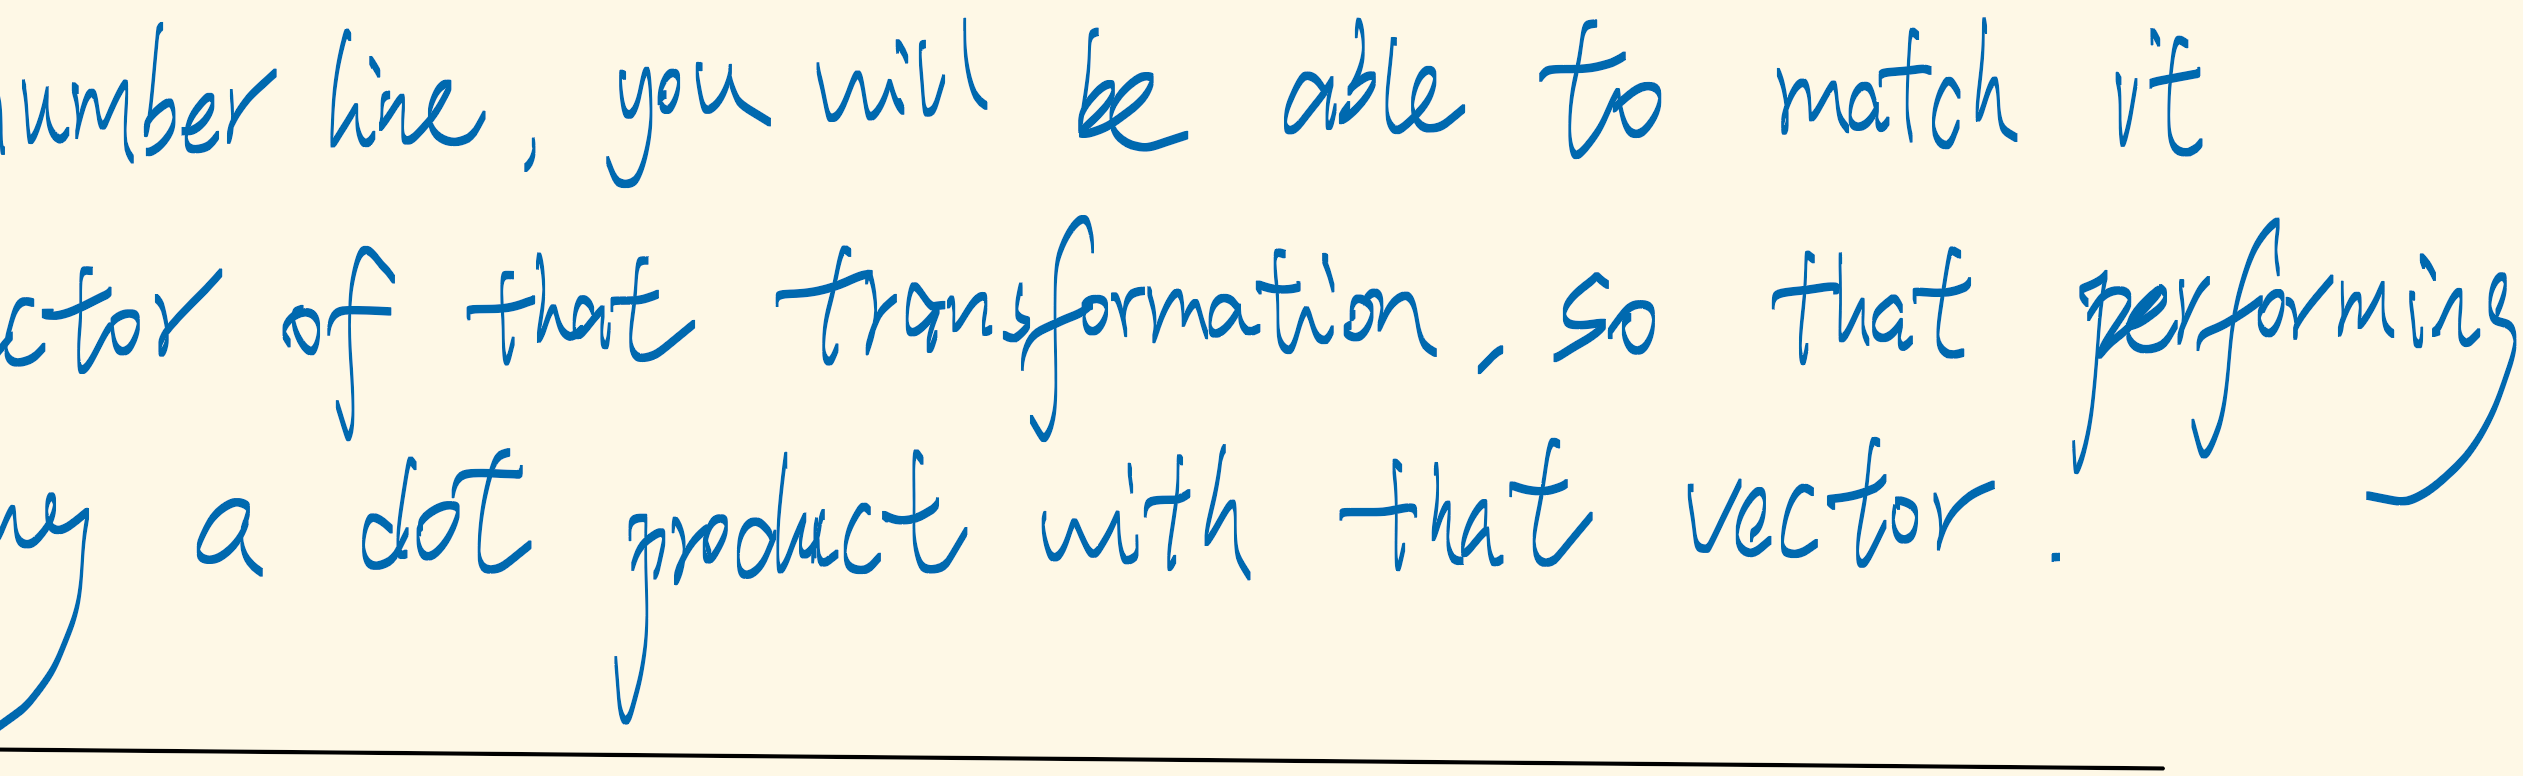 number line, you will be able to match it
ctor of that transformation, so that performing
a dot product with that vector.